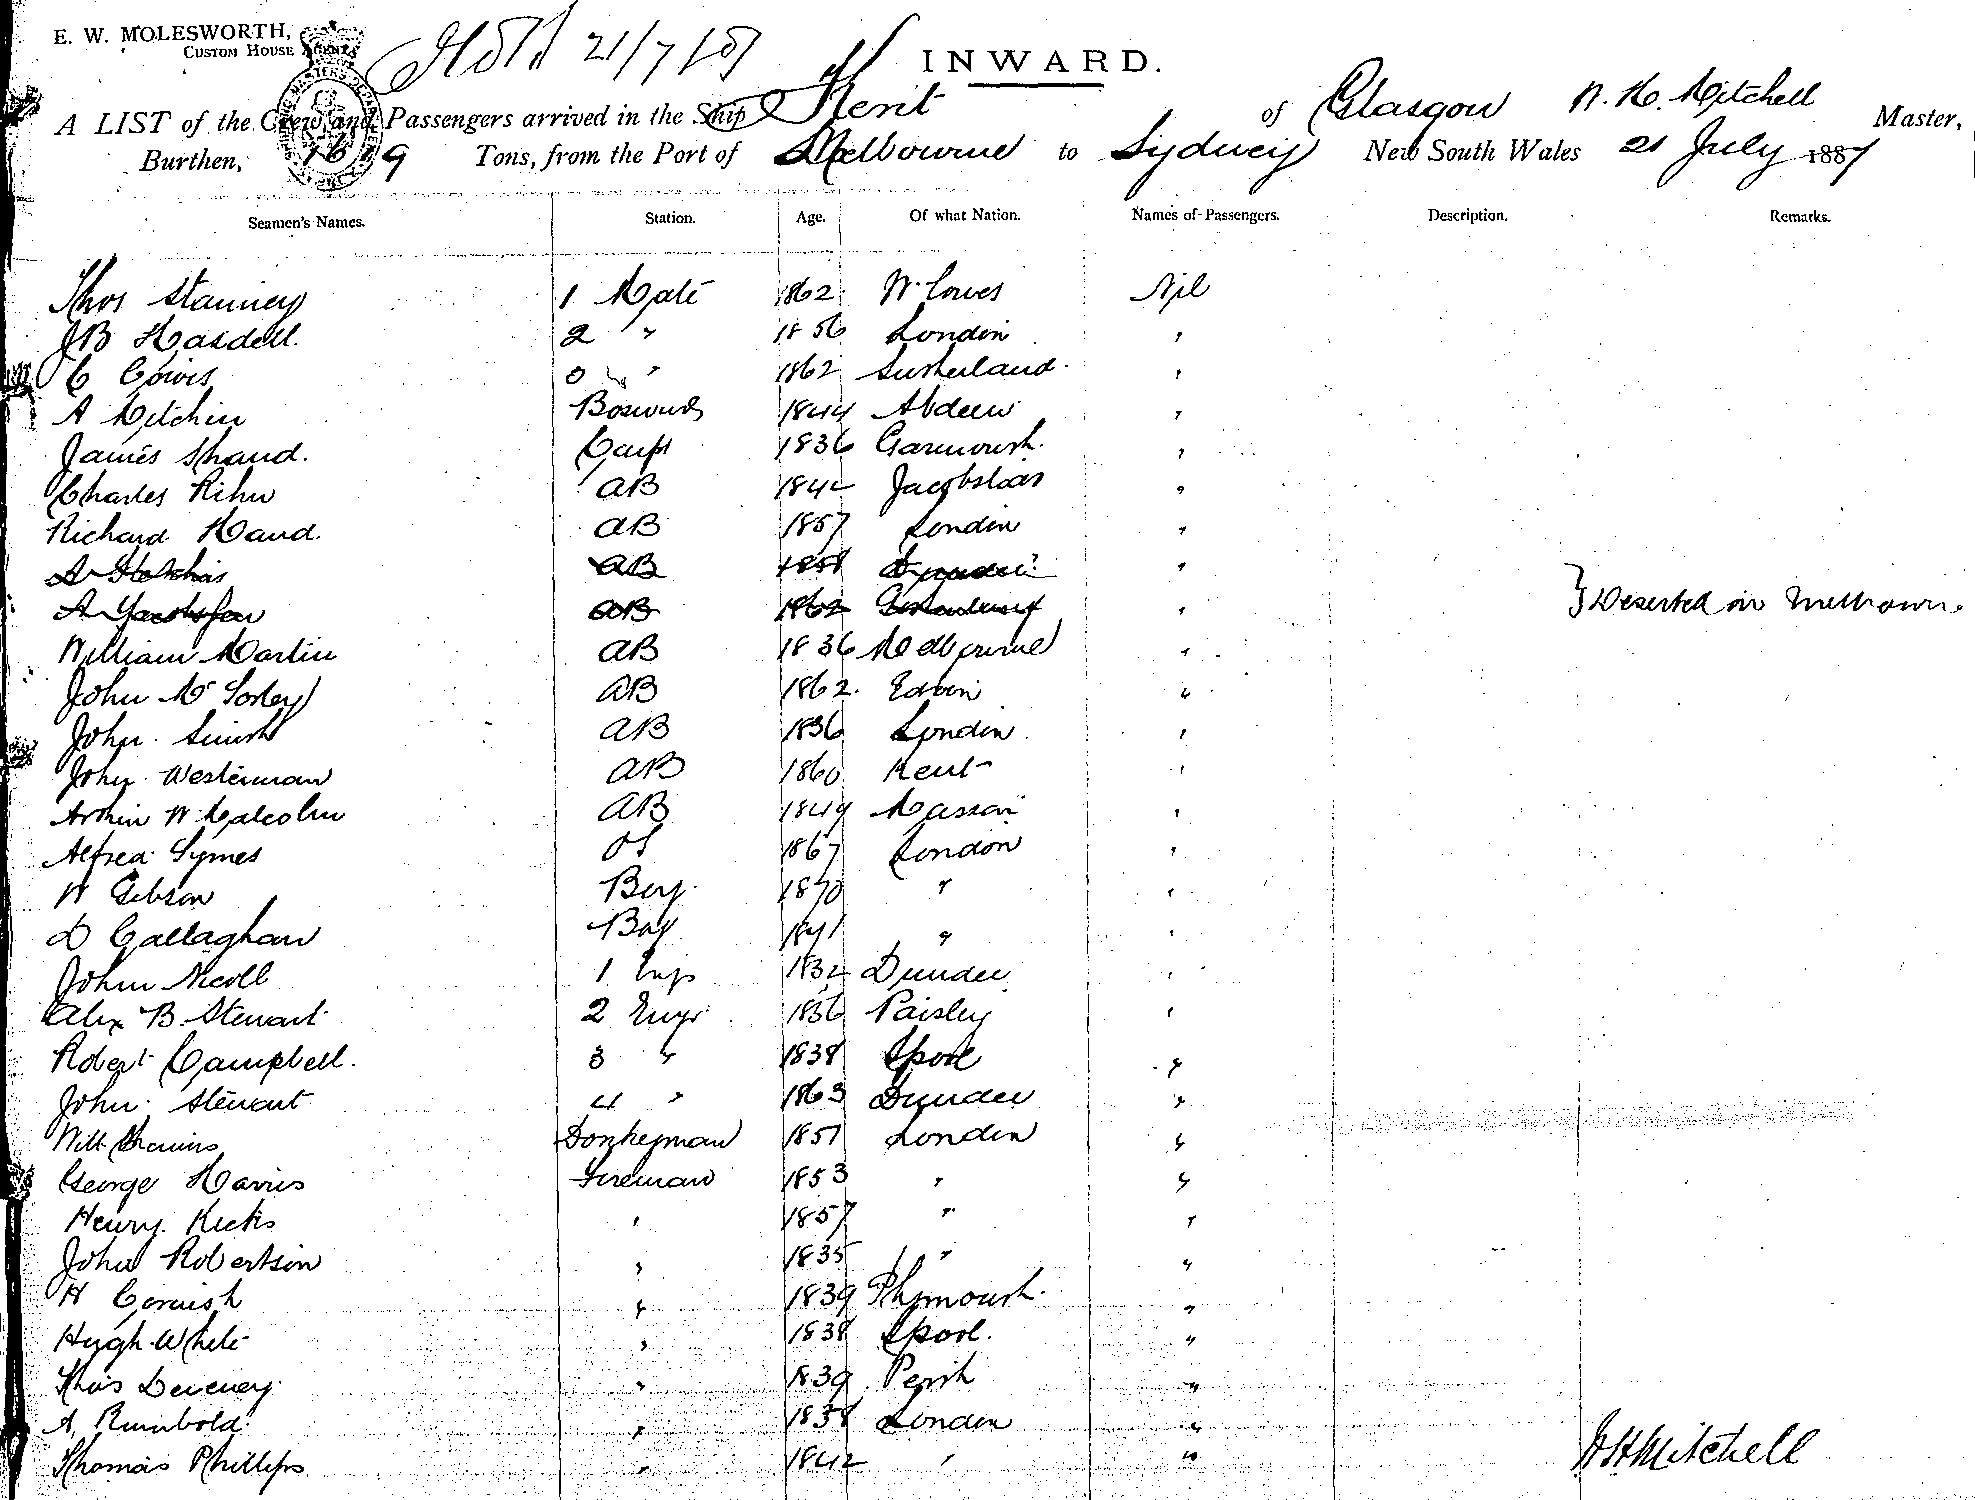 E. W. MOLESWORTH,
CUSTOM HOUSE AGENT
21/7/87
INWARD.
A LIST of the Crew and Passengers arrived in the Ship Kent of Glasgow W. H. Mitchell Master,
Burthen, 1619 Tons, from the Port of Melbourne to Sydney New South Wales 21 July 1887
Seamen's Names. Station. Age. Of what Nation. Names of Passengers. Description. Remarks.
Thos Stanney 1 Mate 1862 W. Cowes Nil
JB Hasdell 2 " 1856 London "
C 3 " 1862 Sutherland "
A Mitchin 1844 "
James Shaud. Carp 1836 Garmouth "
Charles AB 1842 "
Richard Hand. AB 1857 London "
A AB 1858 "
A AB 1862 " } Deserted in Melbourne
William Martin AB 1836 Melbourne "
John McSorley AB 1862. Edin "
John Smith AB 1836 London "
John Westerman AB 1860 Kent "
W Malcolm AB 1849 "
Alfred Symes OS 1867 London "
W Gibson Boy 1870 " "
D Callaghan Boy 1871 " "
John Nicoll 1 Engr 1832 Dundee "
Alex B. Stewart 2 Engr 1836 Paisley "
Robert Campbell. 3 " 1838 Lpool "
John Stewart 4 " 1863 Dundee "
Willm Donkeyman 1851 London "
George Harris Fireman 1853 " "
Henry Hicks " 1857 " "
John Robertson " 1835 " "
H Cornish " 1839 Plymouth "
Hugh White " 1838 Lpool. "
Thos Deveney " 1839 Perth "
A. Rumbold " 1838 London "
Thomas Phillips " 1842 " "
WHMitchell